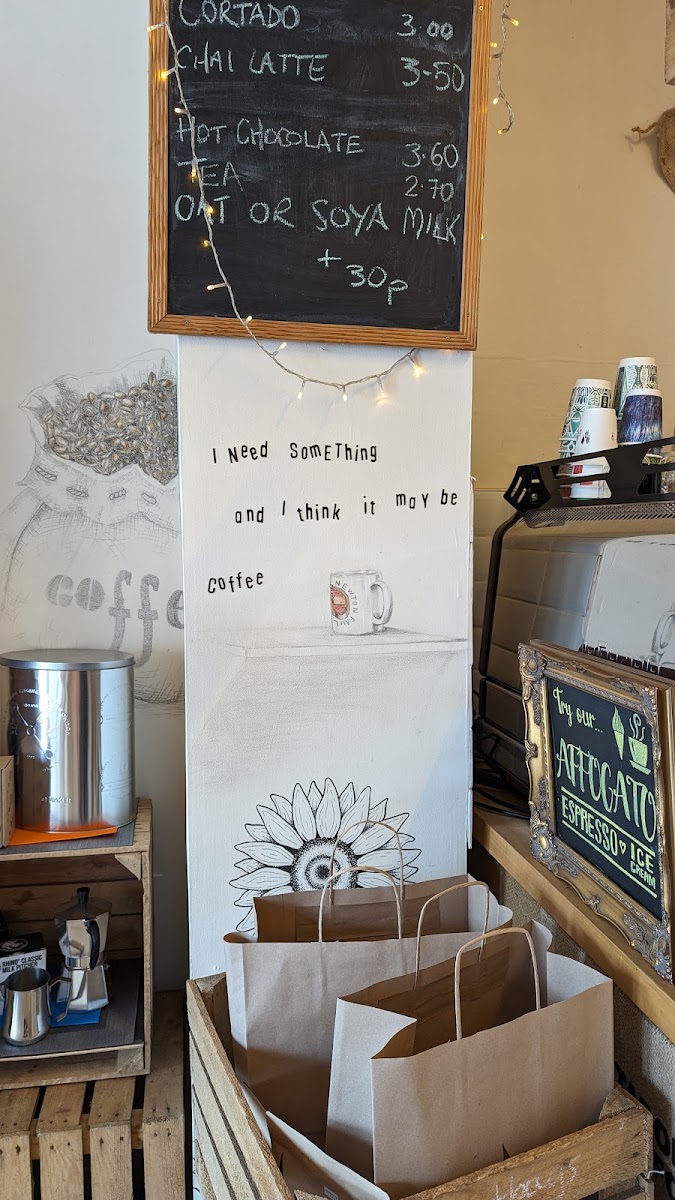 CORTADO 3.00
CHAI LATTE 3-50
HOT CHOCOLATE 3.60
TEA 2.70
OAT OR SOYA MILK
+30p
I Need SomEThing
and I think it may be
coffee
coffe
NEWTON
Try our...
AFFOGATO
ESPRESSO
ICE
CREAM
RHINO CLASSIC
MILK P